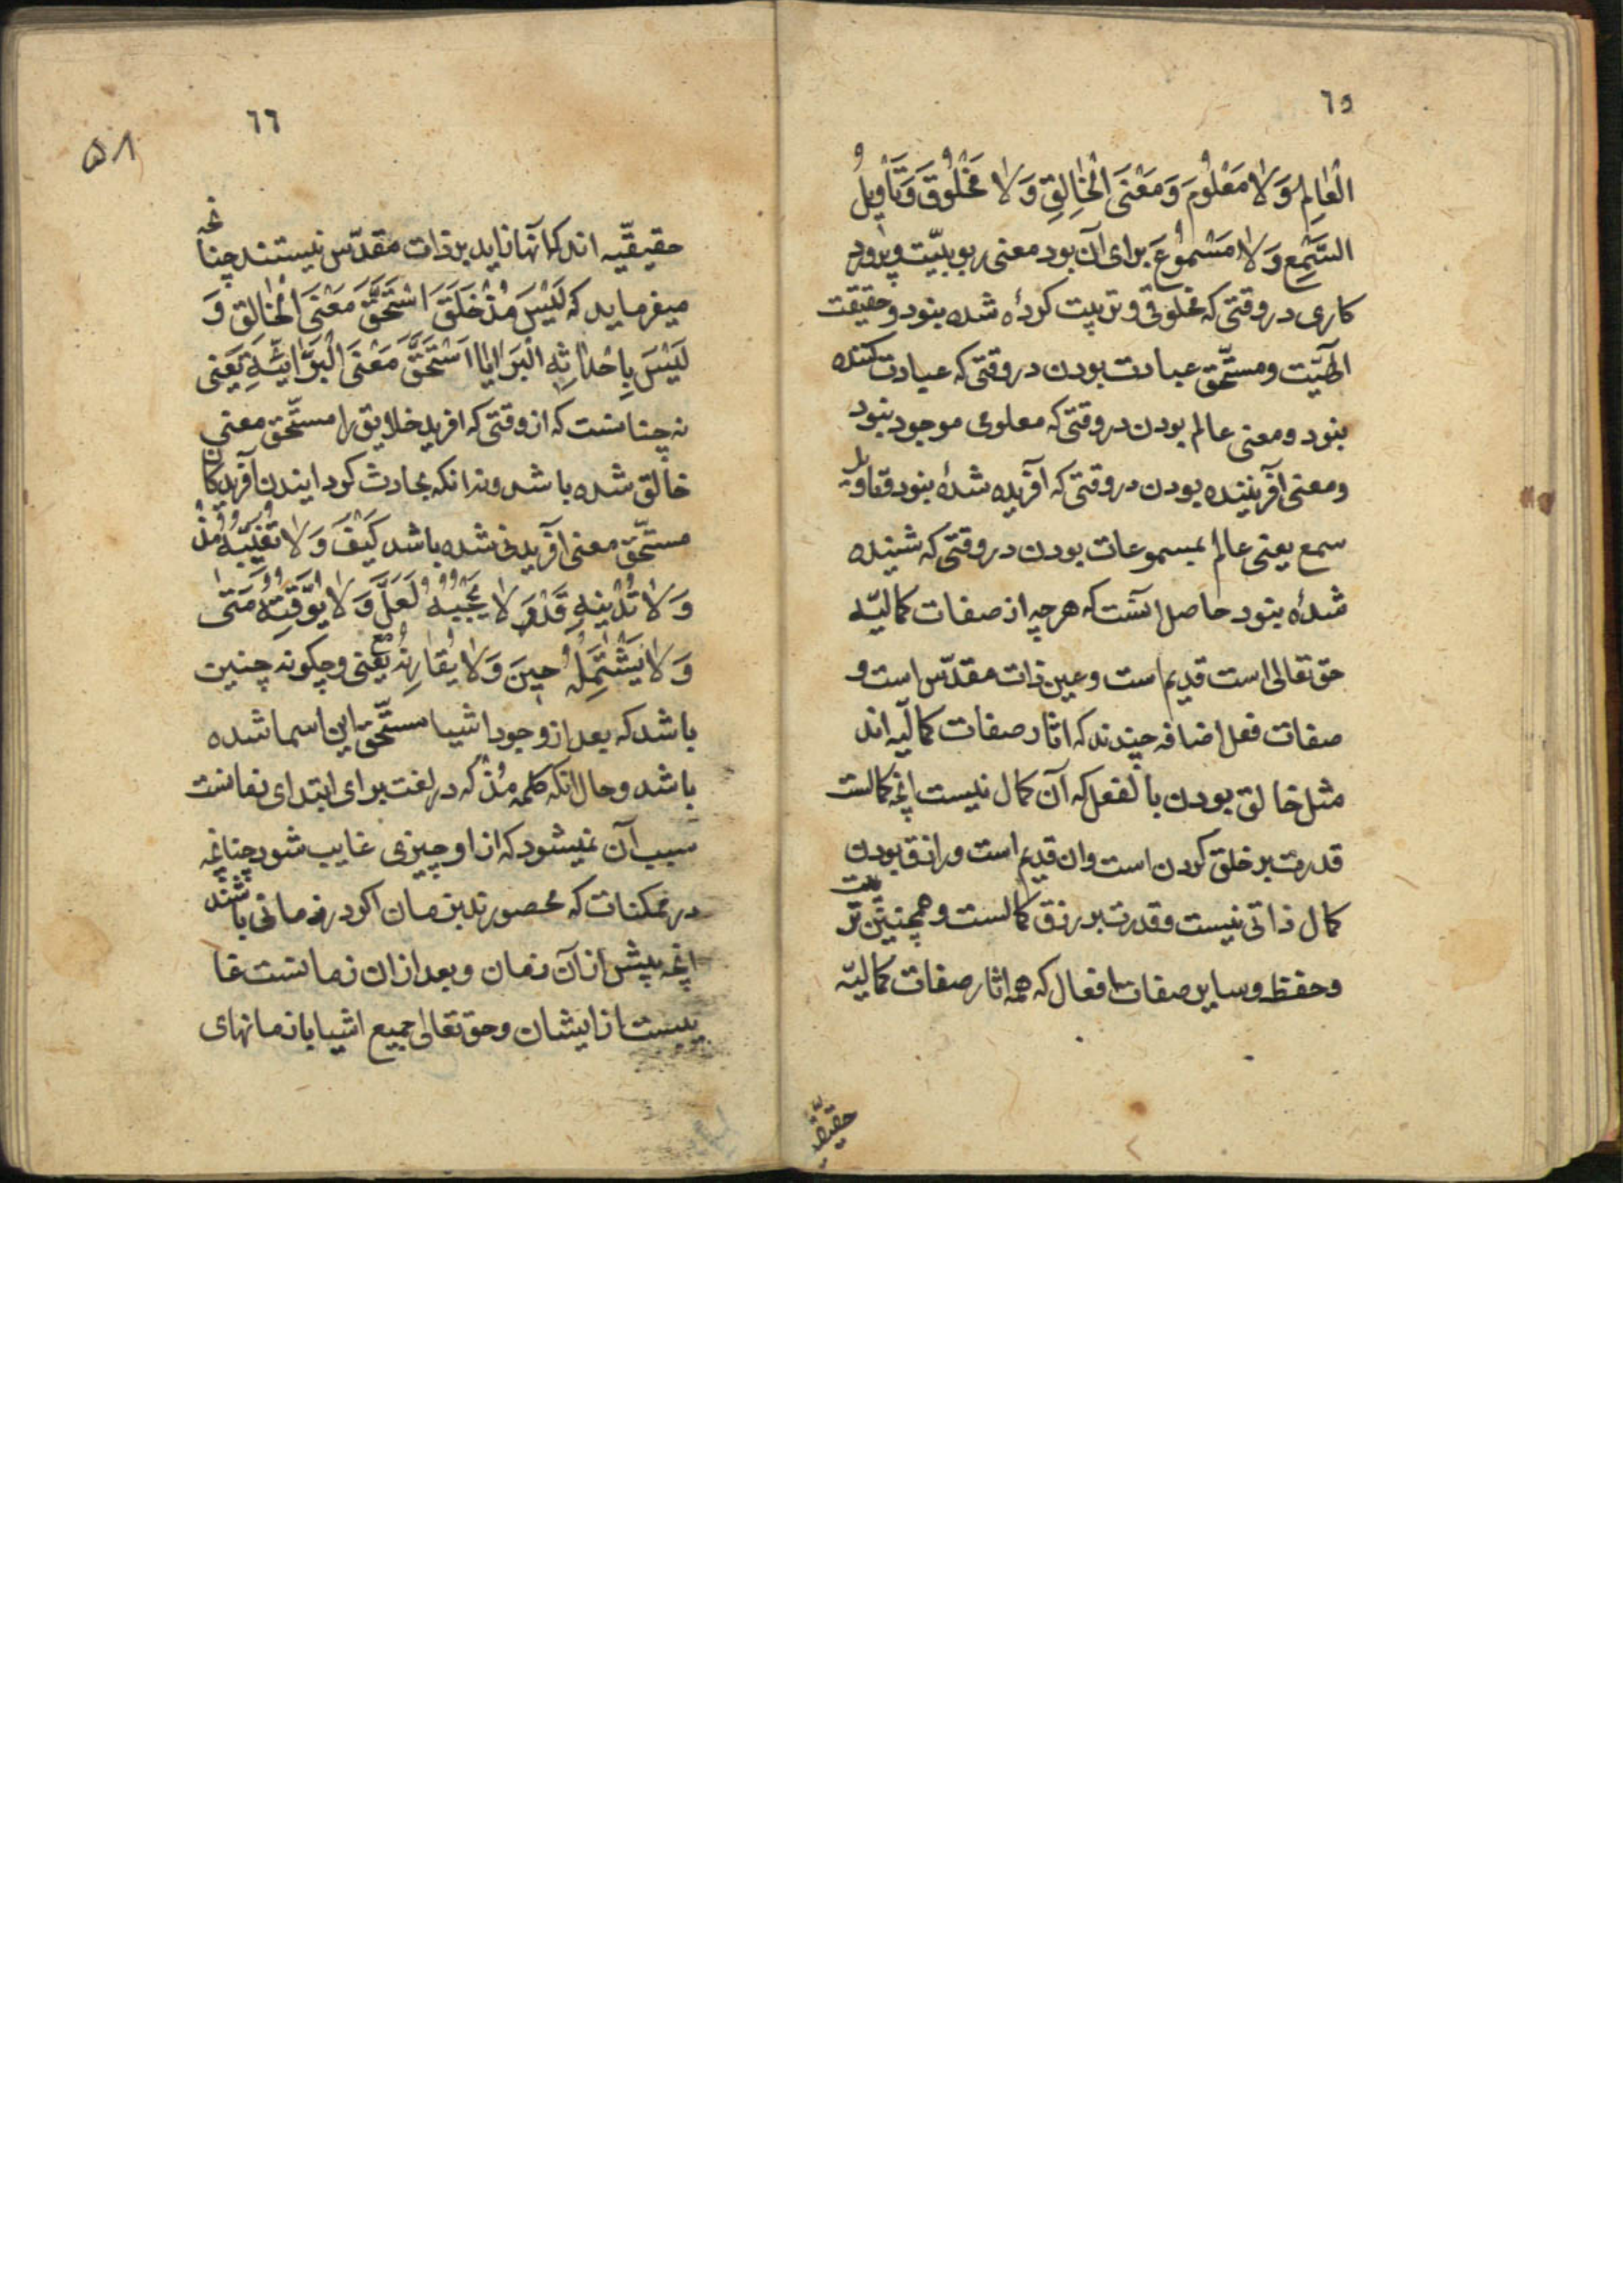 ٦٥
الْعٰالِمِ وَلٰا مَعْلُومَ وَمَعْنَی الْخٰالِقِ وَلٰا مَخْلُوقَ وَتَأْوِیلُ
السَّمْعِ وَلٰا مَسْمُوعَ برای آن بود معنی ربوبیّت وپرورد
کاری در وقتی که مخلوقی وتربیت کردهٔ شده نبود وحقیقت
الٓهیّت ومستحّق عبادت بودن در وقتی که عبادت کننده
نبود ومعنی عالم بودن در وقتی که معلومی موجود نبود
ومعنی آفریننده بودن در وقتی که آفریده شدهٔ نبود وتاویل
سمع یعنی عالم بمسموعات بودن در وقتی که شنیده
شدهٔ نبود حاصل آنست که هرچه از صفات کمالیّه
حق تعالی است قدیم است وعین ذات مقدّس است و
صفات فعل اضافه چندند که اثار صفات کمالیّه اند
مثل خالق بودن بالفعل که آن کمال نیست انچه کمالست
قدرت بر خلق کردن است وان قدیم است ورازق بودن
کمال ذاتی نیست وقدرت بر رزق کمالست وهمچنین تربیت
وحفظ وسایر صفات افعال که همه اثار صفات کمالیّه
حقیقیّه
٦٦
۵۸
حقیقیّه اند که آنها زاید بر ذات مقدّس نیستند چنانچه
میفرماید که لَیْسَ مُنْذُ خَلَقَ اسْتَحَقَّ مَعْنَی الْخٰالِقِ وَ
لَیْسَ بِاِحْدٰاثِهِ الْبَرٰایٰا اسْتَحَقَّ مَعْنَی الْبَرٰائِیَّةِ یعنی
نه چنانست که از وقتی که افرید خلایق را مستحّق معنی
خالق شده باشد ونه انکه بحادث کردانیدن آفریدکان
مستحّق معنی آفریدن شده باشد کَیْفَ وَلٰا تُغَیِّبُهُ مُذْ
وَلٰا تُدْنِیهِ قَدْ وَ لٰا یَحْجُبُهُ لَعَلَّ وَلٰا یُوَقِّتُهُ مَتٰی
وَلٰا یَشْتَمِلُهُ حِینَ وَلٰا یُقٰارِنُهُ مَعَ یعنی وچکونه چنین
باشد که بعد از وجود اشیا مستحّق این اسما شده
باشد وحال انکه کلمه مُذْ که در لغت برای ابتدای زمانست
سبب آن نمیشود که از او چیزی غایب شود چنانچه
در ممکنات که محصورند بزمان اکر در زمانی باشند
انچه پیش از آن زمان وبعد از ان زمانست غا
یبست از ایشان وحق تعالی جمیع اشیا با زمانهای